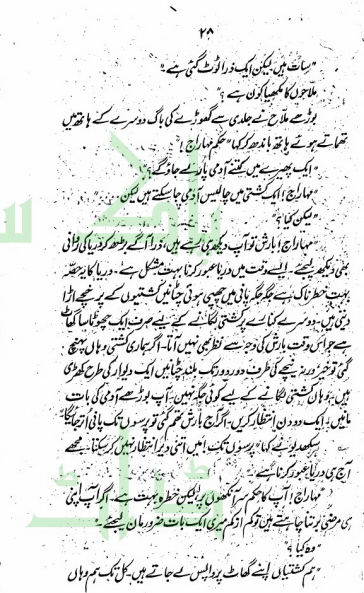 ۲۸
”سات ہیں لیکن ایک ذرا ٹوٹ گئی ہے۔“
”ملاحوں کا مکھیا کون ہے؟“
بوڑھے ملاح نے جلدی سے گھوڑے کی باگ دوسرے کے ہاتھ میں
تھماتے ہوئے ہاتھ باندھ کر کہا ”حکم مہاراج!“
”ایک پھیرے میں کتنے آدمی پار لے جاؤ گے؟“
”مہاراج! ایک کشتی میں چالیس آدمی جا سکتے ہیں لیکن۔“
”لیکن کیا؟“
”مہاراج! بارش تو آپ دیکھ ہی رہے ہیں، ذرا آگے بڑھ کر دریا کی روانی
بھی دیکھ لیجئے۔ ایسے وقت میں دریا عبور کرنا بہت مشکل ہے۔ دریا کا یہ حصّہ
بہت خطرناک ہے جگہ جگہ پانی میں چھپی ہوئی چٹانیں کشتیوں کے پرخچے اڑا
دیتی ہیں۔ دوسرے کنارے پر کشتی لگانے کے لیے صرف ایک چھوٹا سا گھاٹ
ہے جو اس وقت بارش کی وجہ سے نظر بھی نہیں آتا۔ اگر ہماری کشتی وہاں پہنچ
گئی تو خیر ورنہ نیچے کی طرف دور دور تک بلند چٹانیں ایک دیوار کی طرح کھڑی
ہیں۔ وہاں کشتی لگانے کے لیے کوئی جگہ نہیں۔ آپ بوڑھے آدمی کی بات
مانیں۔ ایک دو دن انتظار کریں۔ اگر آج بارش تھم گئی تو پرسوں تک پانی اتر جائیگا“
سکھدیو نے کہا ”پرسوں تک! میں اتنی دیر انتظار نہیں کر سکتا۔ مجھے
آج ہی دریا عبور کرنا ہے۔“
”مہاراج! آپ کا حکم سر آنکھوں پر لیکن خطرہ بہت ہے۔ اگر آپ اپنی
ہی مرضی برتنا چاہتے ہیں تو کم از کم میری ایک بات ضرور مان لیجئے۔“
”وہ کیا؟“
”ہم کشتیاں اپنے گھاٹ پر واپس لے جاتے ہیں۔ کل تک ہم وہاں